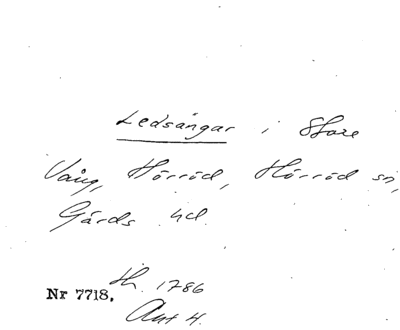 Ledsångar i Store
Vång, Hörröd, Hörröd sn,
Gärds hd.
Nr 7718.
1786